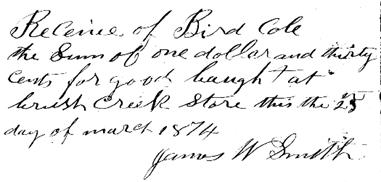 Receive of Bird Cole
the Sum of one dollar and thirty
Cents for good baught at
brush Creek Store this the 25
day of march 1874
James W Smith